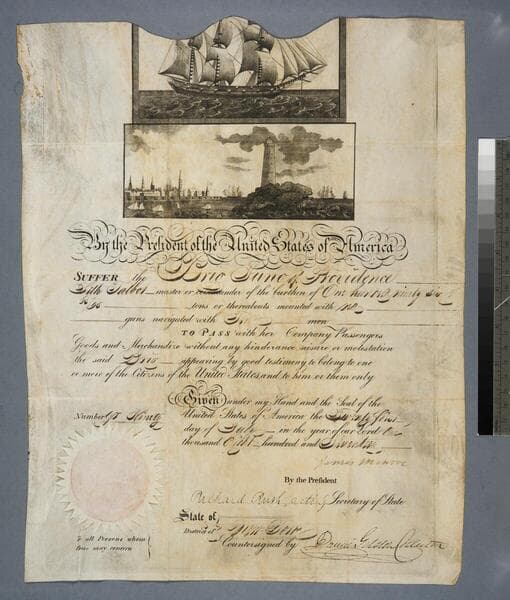 By the President of the United States of America
SUFFER the Brig Juno of Providence
Seth Talbot master or commander of the burthen of One hundred Ninety Six
tons or thereabouts mounted with no
guns navigated with men
TO PASS with her Company Passengers
Goods and Merchandize without any hinderance seisure or molestation
the said Brig appearing by good testimony to belong to one
or more of the Citizens of the United States and to him or them only
Given under my Hand and the Seal of the
Number
United States of America the
day of July in the year of our Lord One
thousand Eight hundred and
James Monroe
By the President
Richard Rush, acting Secretary of State
State of
District of New York
Countersigned by David Gelston Collector
To all Persons whom
these may concern